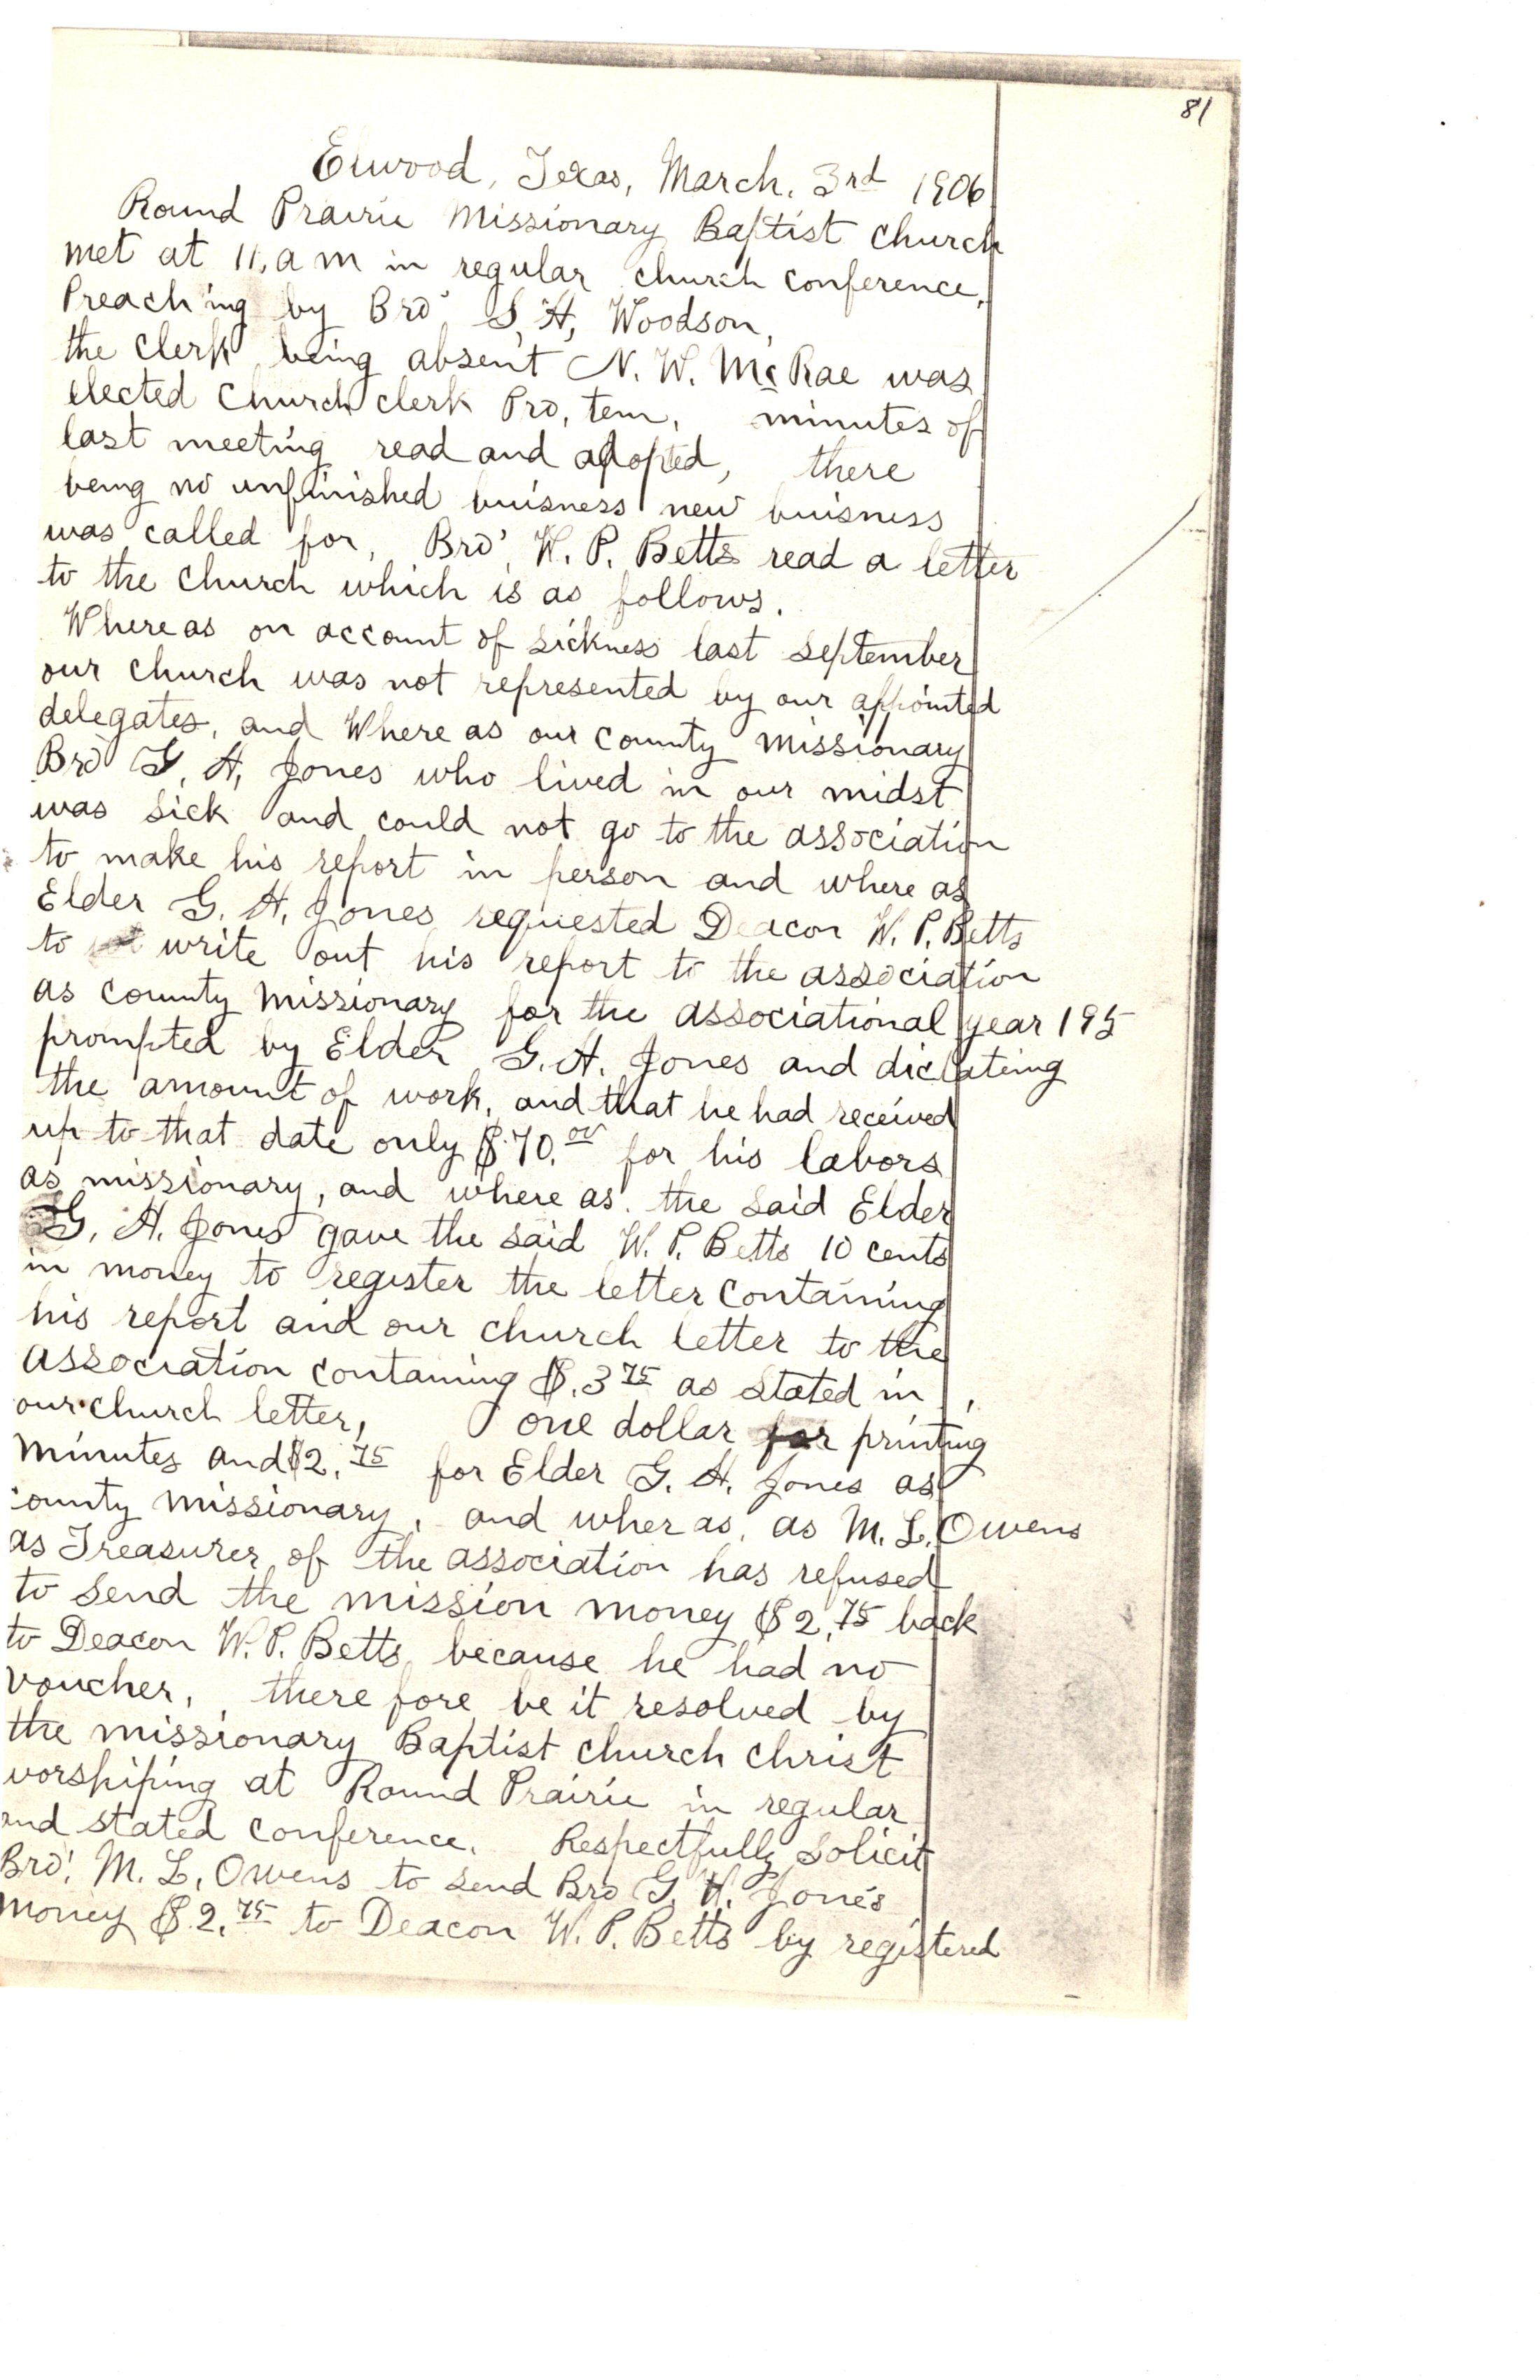 81
Elwood, Texas, March. 3rd 1906
Round Prairie Missionary Baptist Church
met at 11, a m in regular church conference,
Preaching by Bro' S, H, Woodson,
the Clerk being absent N. W. McRae was
elected Church clerk Pro, tem, minutes of
last meeting read and adopted, there
being no unfinished buisness new buisness
was called for, Bro', W. P. Betts read a letter
to the church which is as follows.
Where as on account of sickness last September
our church was not represented by our appointed
delegates, and Where as our county missionary
Bro G, H, Jones who lived in our midst
was sick and could not go to the association
to make his report in person and where as
Elder G. H. Jones requested Deacon W. P. Betts
to write out his report to the association
as county missionary for the associational year 195
prompted by Elder G. H. Jones and dictateing
the amount of work, and that he had received
up to that date only $70.00 for his labors
as missionary, and where as. the said Elder
G. H. Jones gave the said W. P. Betts 10 cents
in money to register the letter containing
his report and our church letter to the
association containing $.3 75 as stated in,
our church letter, one dollar for printing
minutes and $2.75 for Elder G. H. Jones as
county missionary, and wher as, as M. L. Owens
as Treasurer of the association has refused
to send the mission money $2.75 back
to Deacon W. P. Betts because he had no
voucher, there fore be it resolved by
the missionary Baptist church christ
worshiping at Round Prairie in regular
and stated conference. Respectfully Solicit
Bro'. M. L, Owens to send Bro G. H. Jones
money $2.75 to Deacon W. P. Betts by registered